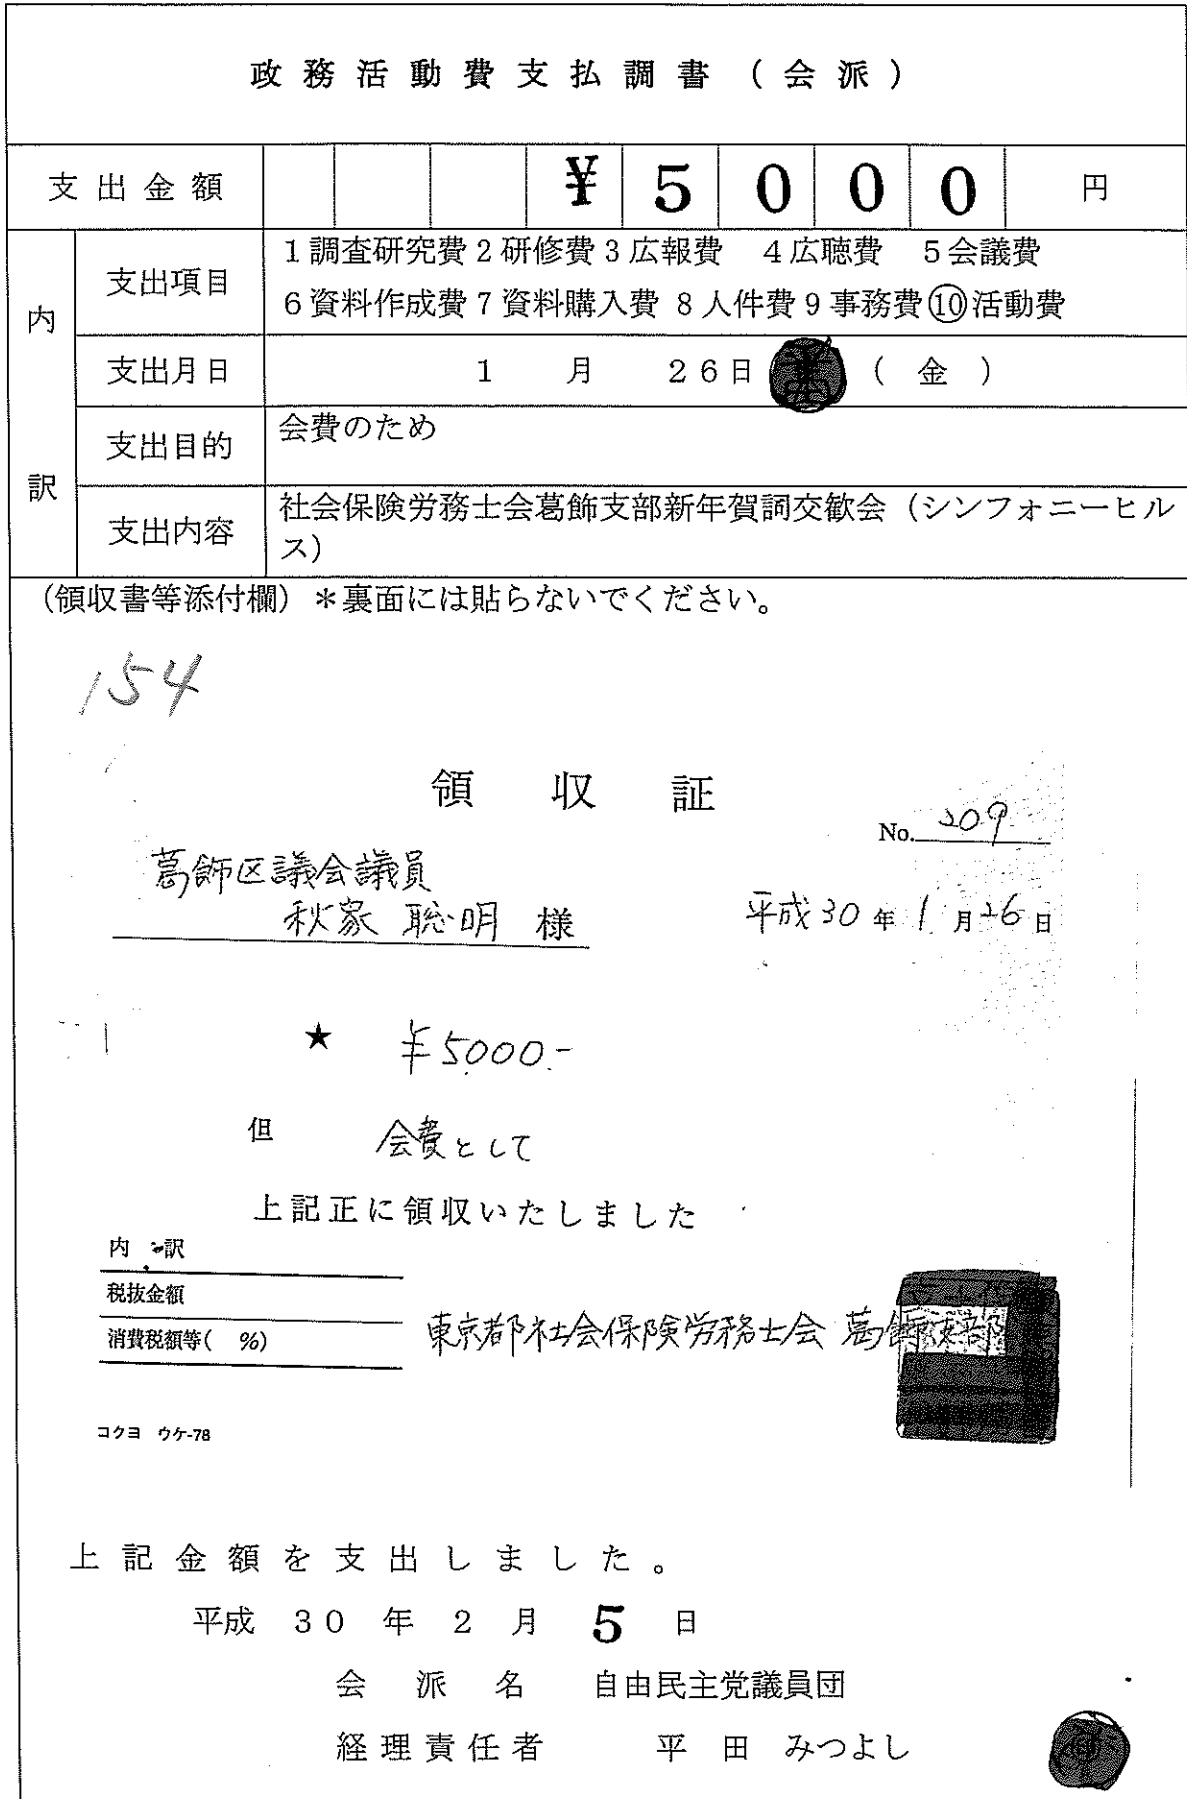 政務活動費支払調書（会派）
支出金額 ¥5000 円
内訳
支出項目 1調査研究費2研修費3広報費 4広聴費 5会議費
6資料作成費7資料購入費 8人件費9事務費⑩活動費
支出月日 1月 26日 （金）
支出目的 会費のため
支出内容 社会保険労務士会葛飾支部新年賀詞交歓会（シンフォニーヒル
ス）
（領収書等添付欄）＊裏面には貼らないでください。
154
領収証
No. 209
葛飾区議会議員
秋家 聡明 様
平成30年1月26日
★ ¥5000.-
但 会費として
上記正に領収いたしました
内訳
税抜金額
消費税額等( %)
東京都社会保険労務士会 葛飾支部
コクヨ ウケ-78
上記金額を支出しました。
平成 30 年 2 月 5 日
会派名 自由民主党議員団
経理責任者 平田 みつよし